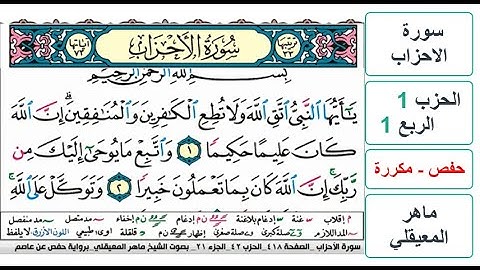 سورة
الاحزاب
الحزب 1
الربع 1
حفص - مكررة
ماهر
المعيقلي
ترتيبها ٣٣
سُورَةُ الأَحْزَابِ
آياتها ٧٣
بِسْمِ اللَّهِ الرَّحْمَٰنِ الرَّحِيمِ
يَٰٓأَيُّهَا ٱلنَّبِىُّ ٱتَّقِ ٱللَّهَ وَلَا تُطِعِ ٱلْكَٰفِرِينَ وَٱلْمُنَٰفِقِينَ ۗ إِنَّ ٱللَّهَ
كَانَ عَلِيمًا حَكِيمًا ١ وَٱتَّبِعْ مَا يُوحَىٰٓ إِلَيْكَ مِن
رَّبِّكَ ۚ إِنَّ ٱللَّهَ كَانَ بِمَا تَعْمَلُونَ خَبِيرًا ٢ وَتَوَكَّلْ عَلَى ٱللَّهِ ۚ
إقلاب غنة إدغام بلاغنة إدغام إخفاء مد متصل مد منفصل
وصلة كبرى وصلة صغرى إظهار قلقلة اوى؛ طبيعي اللون الأزرق لايلفظ
سورة الأحزاب . الصفحة ٤١٨ . الحزب ٤٢ . الجزء ٢١ . بصوت الشيخ ماهر المعيقلي . برواية حفص عن عاصم